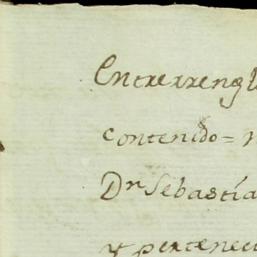 Entrerrengl
contenido =
Dn Sebastia
y pertenec